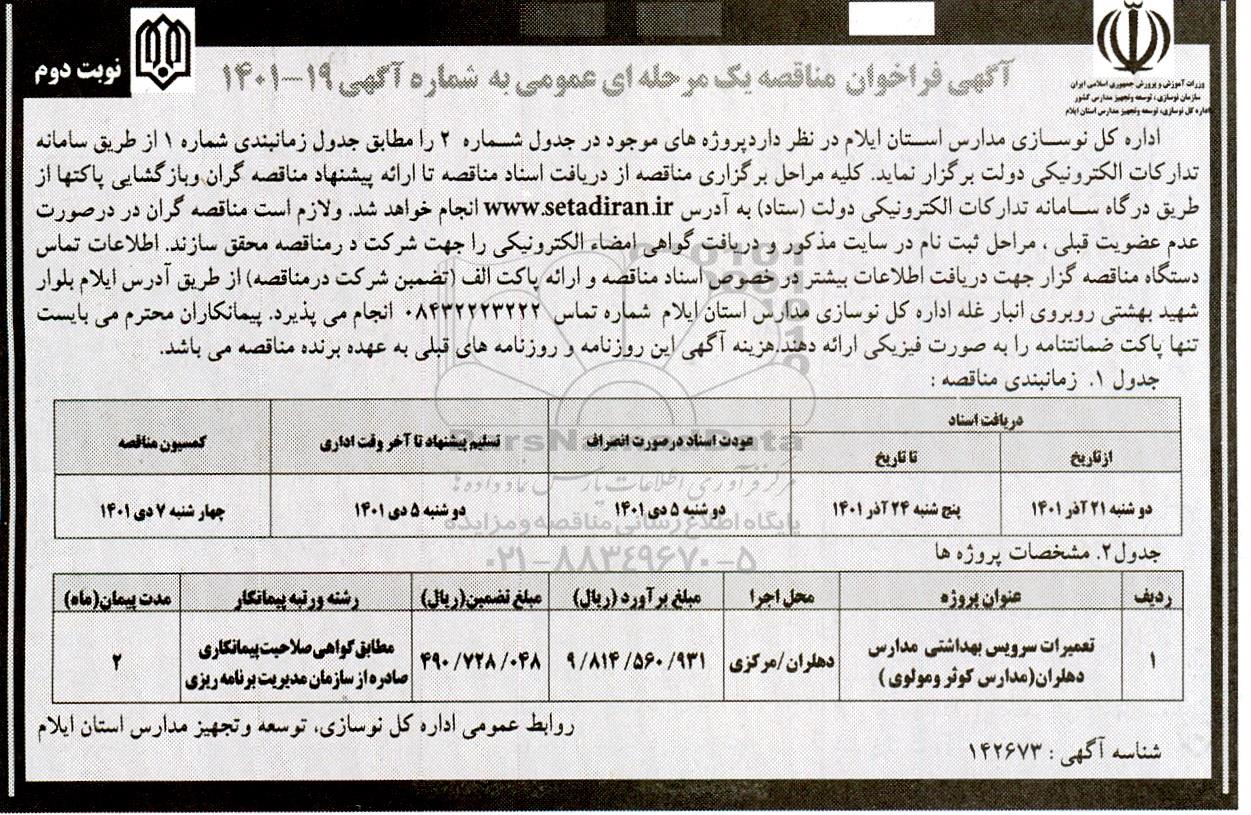 وزارت آموزش و پرورش جمهوری اسلامی ایران
سازمان نوسازی، توسعه وتجهیز مدارس کشور
اداره کل نوسازی، توسعه وتجهیز مدارس استان ایلام
نوبت دوم
آگهی فراخوان مناقصه یک مرحله ای عمومی به شماره آگهی ۱۹-۱۴۰۱
اداره کل نوسازی مدارس استان ایلام در نظر داردپروژه های موجود در جدول شماره ۲ را مطابق جدول زمانبندی شماره ۱ از طریق سامانه
تدارکات الکترونیکی دولت برگزار نماید. کلیه مراحل برگزاری مناقصه از دریافت اسناد مناقصه تا ارائه پیشنهاد مناقصه گران وبازگشایی پاکتها از
طریق درگاه سامانه تدارکات الکترونیکی دولت (ستاد) به آدرس www.setadiran.ir انجام خواهد شد. ولازم است مناقصه گران در درصورت
عدم عضویت قبلی ، مراحل ثبت نام در سایت مذکور و دریافت گواهی امضاء الکترونیکی را جهت شرکت د رمناقصه محقق سازند. اطلاعات تماس
دستگاه مناقصه گزار جهت دریافت اطلاعات بیشتر در خصوص اسناد مناقصه و ارائه پاکت الف (تضمین شرکت درمناقصه) از طریق آدرس ایلام بلوار
شهید بهشتی روبروی انبار غله اداره کل نوسازی مدارس استان ایلام شماره تماس ۰۸۴۳۲۲۲۳۲۲۲ انجام می پذیرد. پیمانکاران محترم می بایست
تنها پاکت ضمانتنامه را به صورت فیزیکی ارائه دهند.هزینه آگهی این روزنامه و روزنامه های قبلی به عهده برنده مناقصه می باشد.
جدول ۱. زمانبندی مناقصه :
دریافت اسناد
ازتاریخ تا تاریخ عودت اسناد درصورت انصراف تسلیم پیشنهاد تا آخر وقت اداری کمسیون مناقصه
دو شنبه ۲۱ آذر ۱۴۰۱ پنج شنبه ۲۴ آذر ۱۴۰۱ دو شنبه ۵ دی ۱۴۰۱ دو شنبه ۵ دی ۱۴۰۱ چهار شنبه ۷ دی ۱۴۰۱
ParsNamadData
مرکز فرآوری اطلاعات پارس نماد داده ها
پایگاه اطلاع رسانی مناقصه و مزایده
۰۲۱-۸۸۳۴۹۶۷۰-۵
جدول۲. مشخصات پروژه ها
ردیف عنوان پروژه محل اجرا مبلغ برآورد (ریال) مبلغ تضمین(ریال) رشته ورتبه پیمانکار مدت پیمان(ماه)
۱ تعمیرات سرویس بهداشتی مدارس دهلران(مدارس کوثر ومولوی ) دهلران/مرکزی ۹/۸۱۴/۵۶۰/۹۳۱ ۴۹۰/۷۲۸/۰۴۸ مطابق گواهی صلاحیت پیمانکاری صادره از سازمان مدیریت برنامه ریزی ۲
روابط عمومی اداره کل نوسازی، توسعه وتجهیز مدارس استان ایلام
شناسه آگهی : ۱۴۲۶۷۳